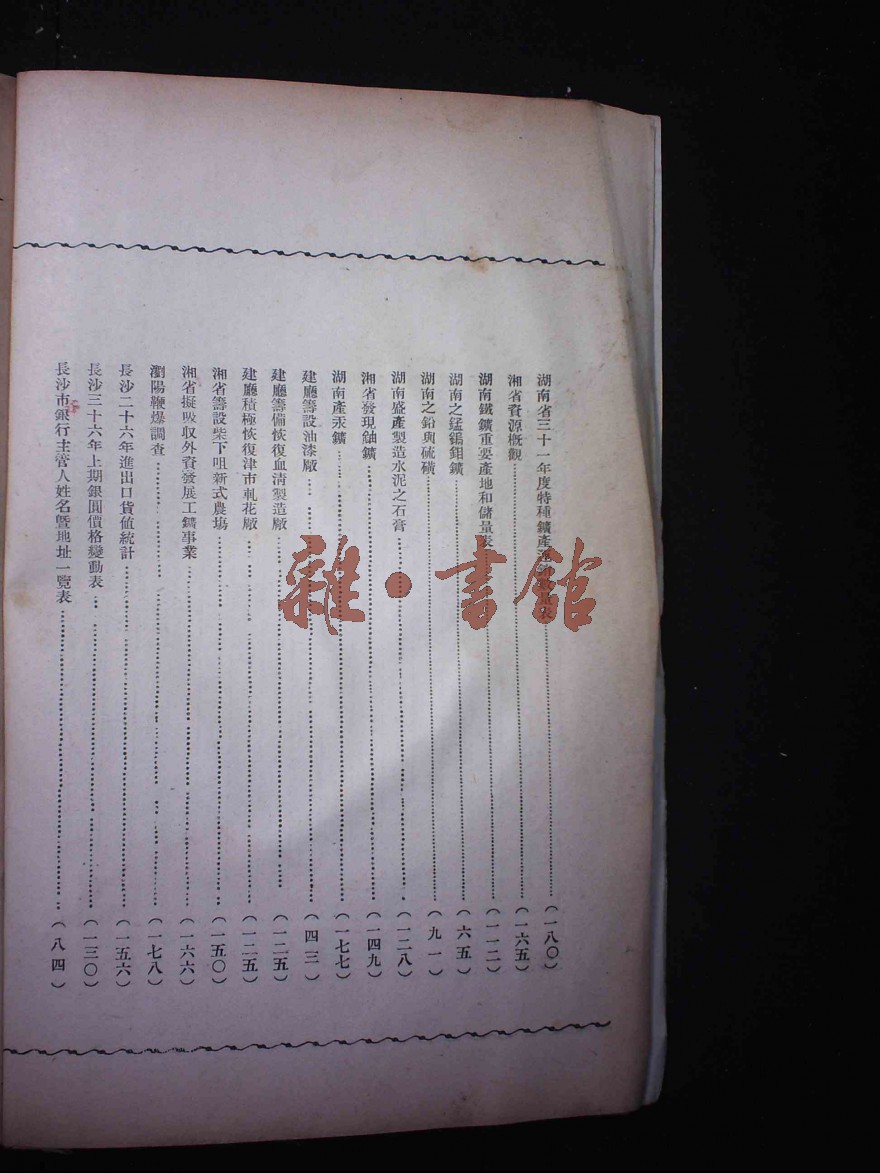 湖南省三十一年度特種鑛產運銷數量表……(一八〇)
湘省資源概觀……(一六五)
湖南鐵鑛重要產地和儲量表……(一一二)
湖南之錳鎢鉬鑛……(六五)
湖南之鉛與硫磺……(九一)
湖南盛產製造水泥之石膏……(一二八)
湘省發現鈾鑛……(一四九)
湖南產汞鑛……(一七七)
建廳籌設油漆廠……(四三)
建廳籌備恢復血清製造廠……(一二五)
建廳積極恢復津市軋花廠……(一二五)
湘省籌設柴下咀新式農塲……(一五〇)
湘省擬吸取外資發展工鑛事業……(一六六)
瀏陽鞭爆調查……(一七八)
長沙二十六年進出口貨値統計……(一五六)
長沙三十六年上期銀圓價格變動表……(一三〇)
長沙市銀行主管人姓名暨地址一覽表……(八四)
雜·書館